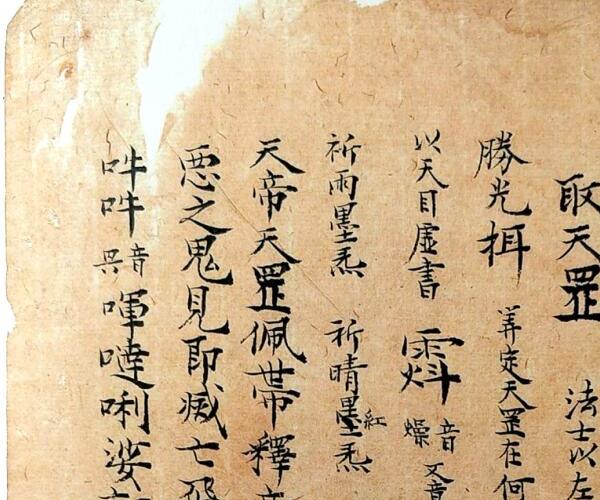 取天罡 法士以左
勝光揖 筭定天罡在何
以天目虚書 音燥 又音
祈雨墨炁 祈晴紅墨炁
天帝天罡佩带釋
惡之鬼見即滅亡
吽吽 音吳 㖶噠唎娑